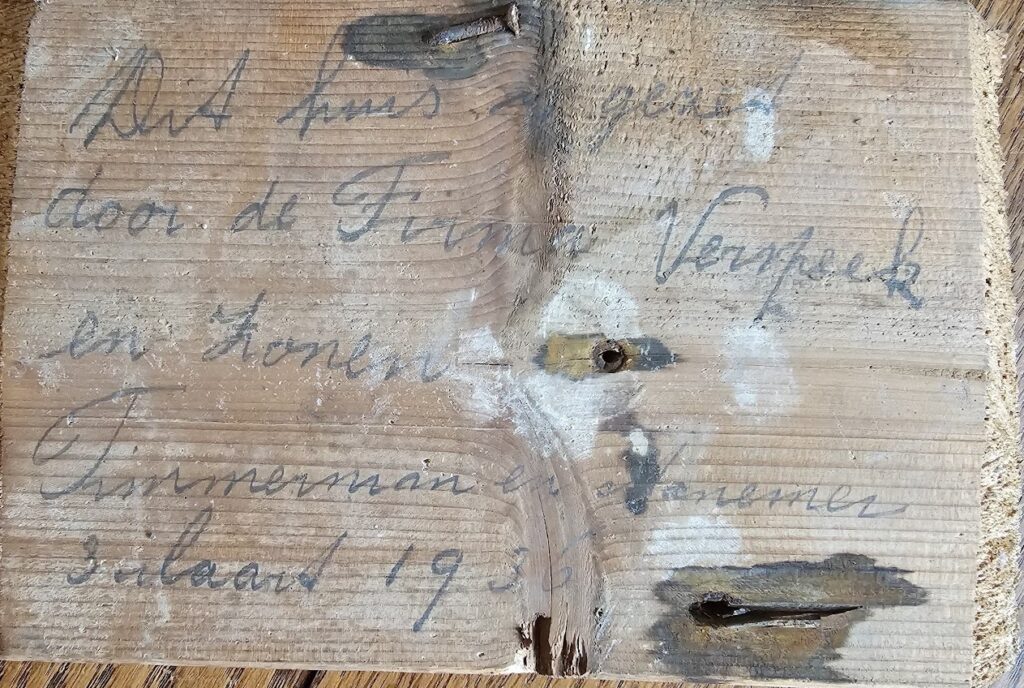 Dit huis is gezet
door de Firma Verspeek
en Zonen
Timmerman en Aanemer
3 Maart 1936